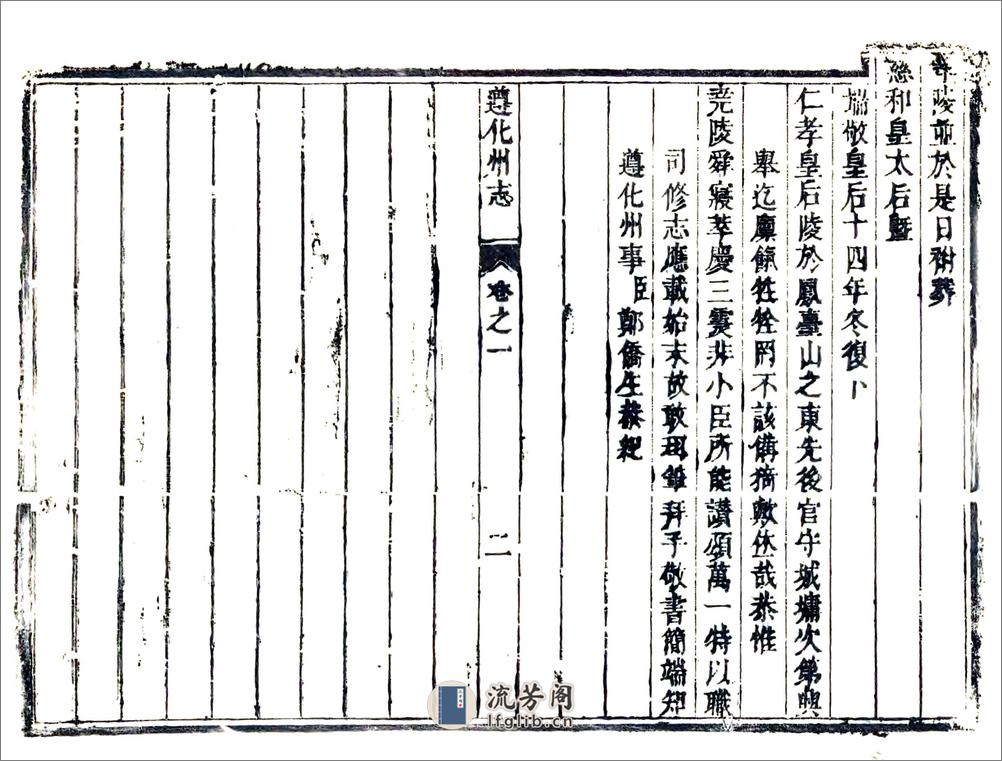 孝陵並於是日祔葬
慈和皇太后暨
端敬皇后十四年冬復卜
仁孝皇后陵於鳳臺山之東先後官守城墉次第興
舉迄廩餼牲牷罔不該備猗歟休哉恭惟
堯陵舜寢萃慶三非小臣所能讃頌萬一特以職
司修志應載始末故敢珥筆拜手敬書簡端知
遵化州事臣鄭僑生恭紀
遵化州志 卷之一 二
流芳阁
lfglib.cn